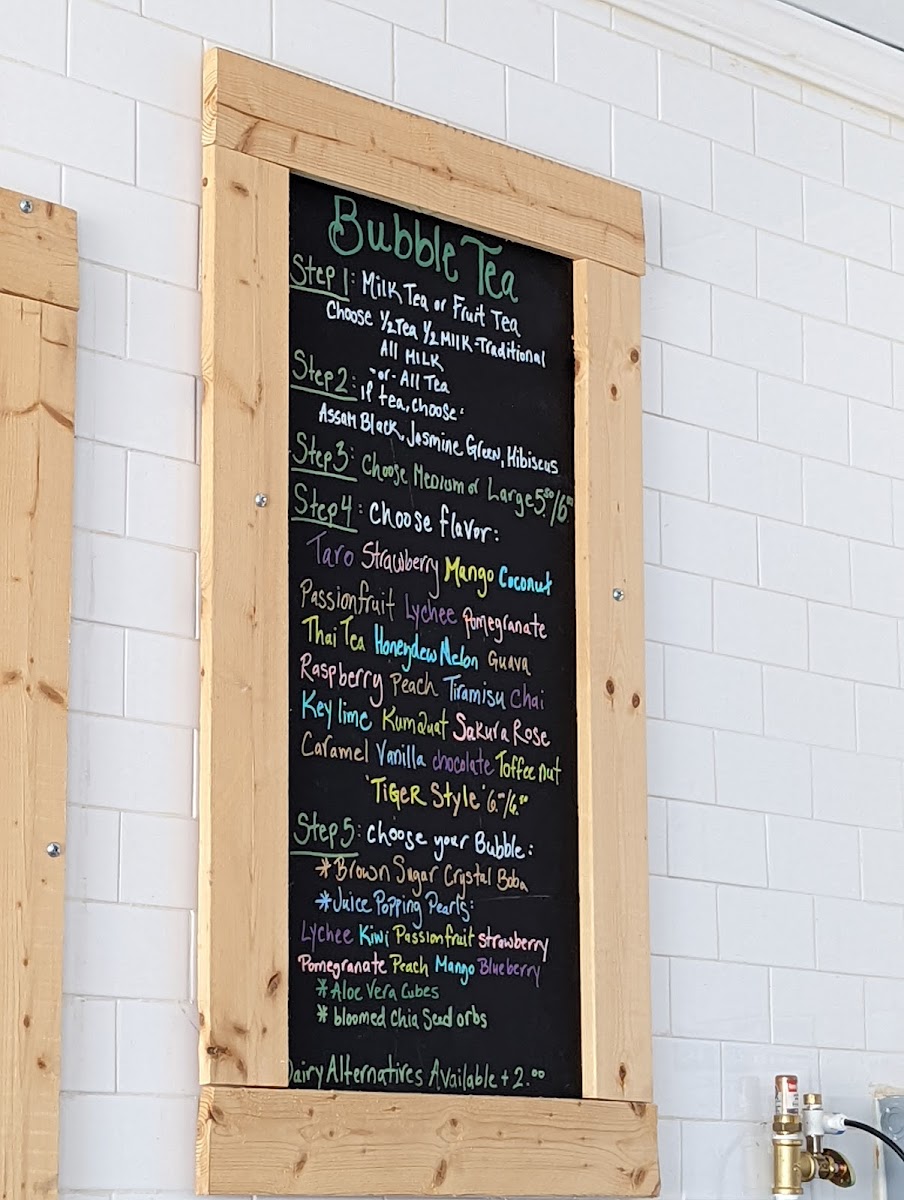 Bubble Tea
Step 1: Milk Tea or Fruit Tea
Choose 1/2 Tea 1/2 Milk-Traditional
All Milk
Step 2: -or- All Tea
If tea, choose:
Assam Black, Jasmine Green, Hibiscus
Step 3: Choose Medium or Large 5.50/6.00
Step 4: Choose flavor:
Taro Strawberry Mango Coconut
Passionfruit Lychee Pomegranate
Thai Tea Honeydew Melon Guava
Raspberry Peach Tiramisu Chai
Key lime Kumquat Sakura Rose
Caramel Vanilla chocolate Toffee nut
"Tiger Style" 6.00/6.50
Step 5: choose your Bubble:
*Brown Sugar Crystal Boba
*Juice Popping Pearls:
Lychee Kiwi Passionfruit strawberry
Pomegranate Peach Mango Blueberry
*Aloe Vera Cubes
*bloomed Chia Seed orbs
Dairy Alternatives Available + 2.00